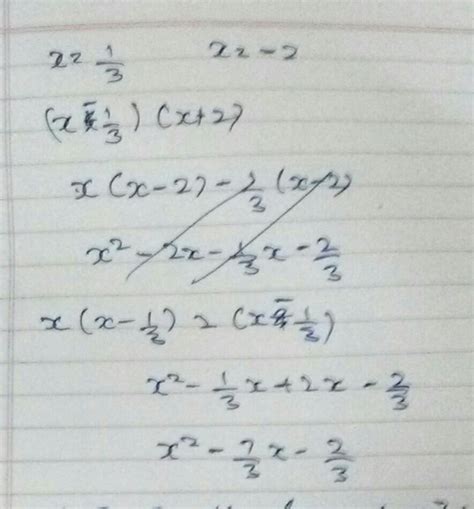 x = 1/3 x = -2
(x - 1/3) (x+2)
x (x-2) - 1/3 (x-2)
x² - 2x - 1/3 x - 2/3
x (x - 1/3) 2 (x - 1/3)
x² - 1/3 x + 2x - 2/3
x² - 7/3 x - 2/3